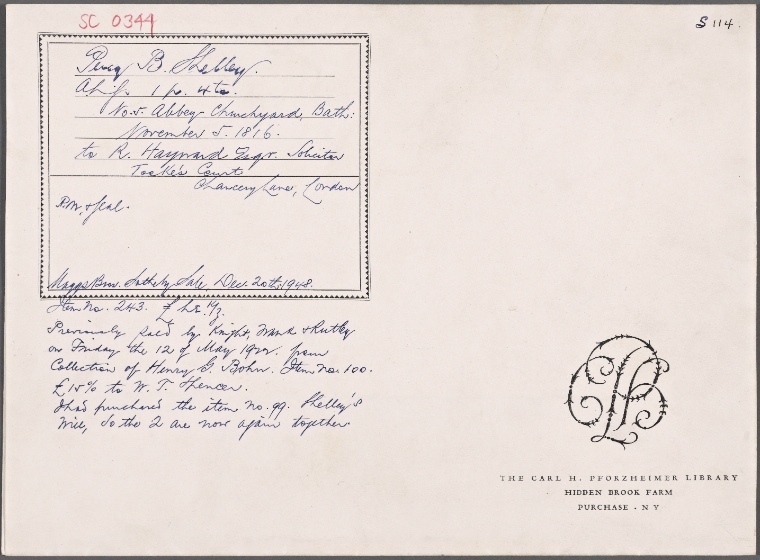 SC 0344
S 114.
Percy B. Shelley.
A.L.S. 1 p. 4to.
No. 5. Abbey Churchyard, Bath:
November 5. 1816.
to R. Hayward Esqr. Solicitor
Tooke's Court
Chancery Lane, London
P.M. & seal.
Maggs Bros. Sotheby Sale, Dec. 20th, 1948.
Item No. 243. £
Previously sold by Knight, Frank & Rutley
on Friday the 12 of May 1922. from
Collection of Henry G. Bohn. Item No. 100.
£15 to W. T. Spencer.
I had purchased the item No. 99. Shelley's
Will, so the 2 are now again together
THE CARL H. PFORZHEIMER LIBRARY
HIDDEN BROOK FARM
PURCHASE · N Y